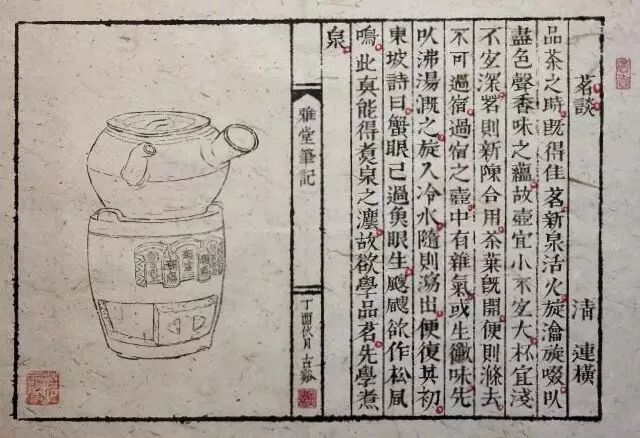 茗談 清 連橫
品茶之時既得佳茗新泉活火旋瀹旋啜以
盡色聲香味之蘊故壺宜小不宜大杯宜淺
不宜深茗則新陳合用茶葉既開便則滌去
不可過宿過宿之壺中有雜氣或生黴味先
以沸湯溉之旋入冷水隨則蕩出便復其初
東坡詩曰蟹眼已過魚眼生颼颼欲作松風
鳴此真能得煮泉之灋故欲學品茗先學煮
泉
雅堂筆記
丁酉 月古